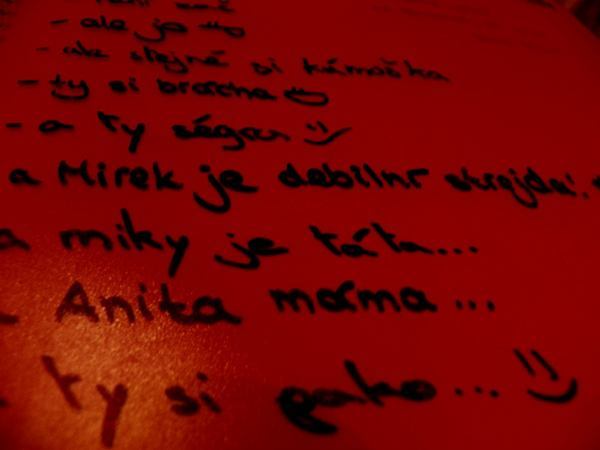 - ale jo
- ale stejně si kámoška
- ty si brácha
- a ty ségra :)
a Mirek je debilní strejda!
a miky je táta...
Anita máma...
ty si gako... :)